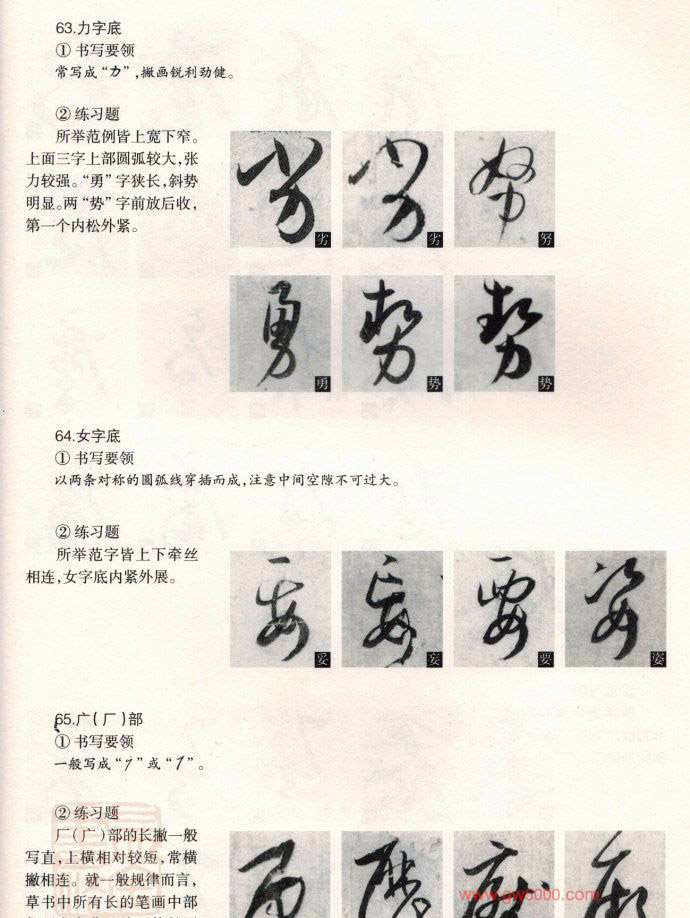 63.力字底
① 书写要领
常写成“力”,撇画锐利劲健。
② 练习题
所举范例皆上宽下窄。
上面三字上部圆弧较大,张
力较强。“勇”字狭长,斜势
明显。两“势”字前放后收,
第一个内松外紧。
劣
劣
努
勇
势
势
64.女字底
① 书写要领
以两条对称的圆弧线穿插而成,注意中间空隙不可过大。
② 练习题
所举范字皆上下牵丝
相连,女字底内紧外展。
妥
妄
要
姿
65.广(厂)部
① 书写要领
② 练习题
厂(广)部的长撇一般
写直,上横相对较短,常横
撇相连。就一般规律而言,
草书中所有长的笔画中部
www.gw5000.com